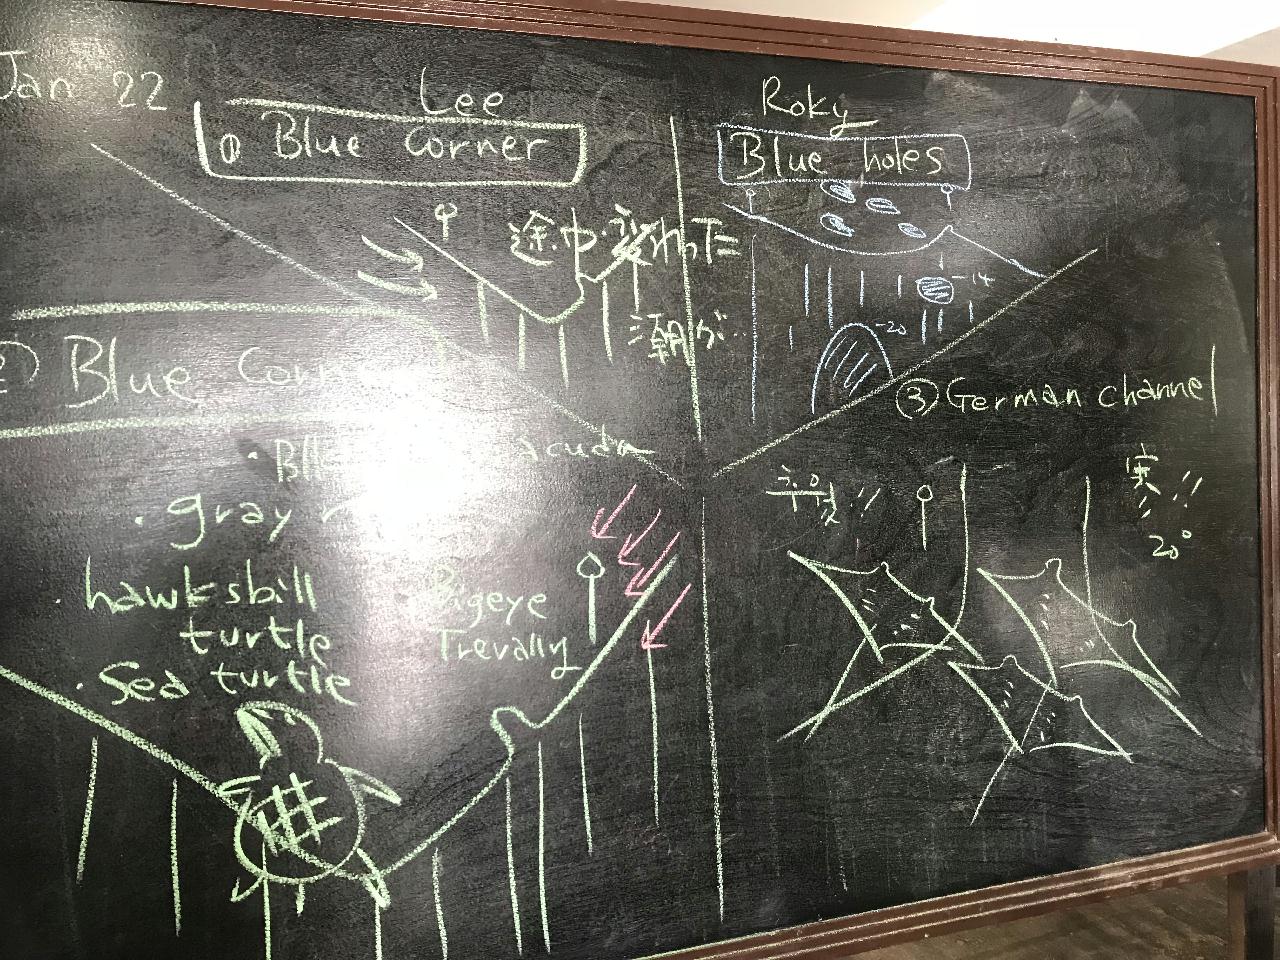 Jan 22
Lee
① Blue Corner
途中変わった
潮が…
Roky
Blue holes
-14
-20
② Blue Corner
gray
hawksbill
turtle
Sea turtle
Bigeye
Trevally
③ German channel
20°